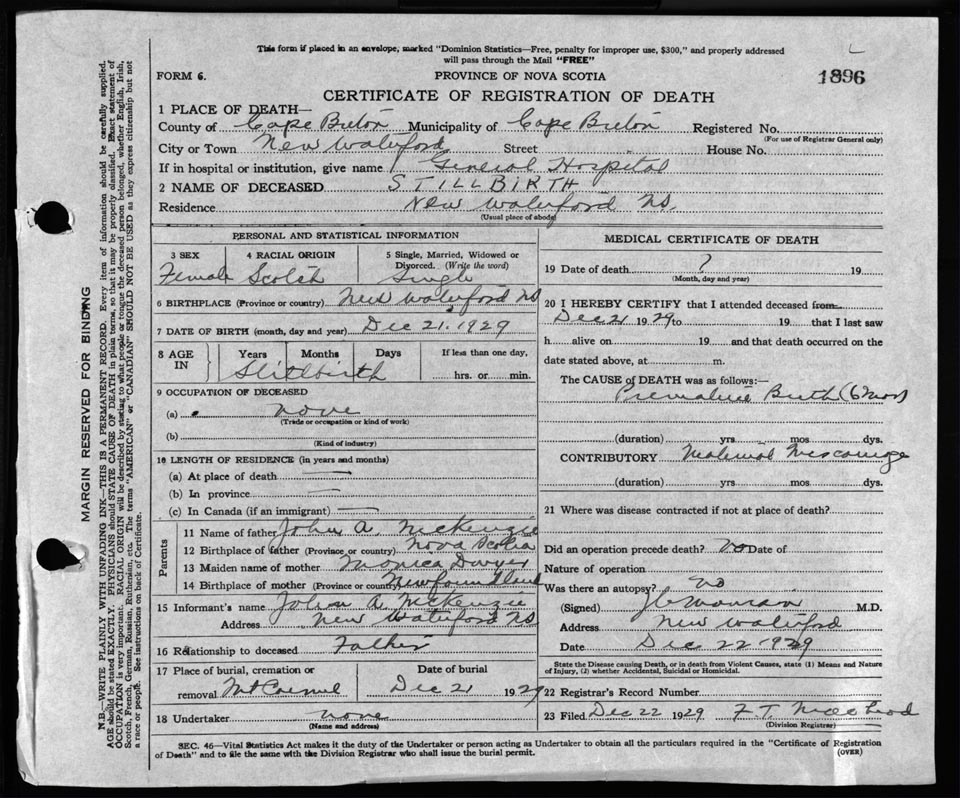 This form if placed in an envelope, marked "Dominion Statistics—Free, penalty for improper use, $300," and properly addressed
will pass through the Mail "FREE"
FORM 6. PROVINCE OF NOVA SCOTIA 1896
CERTIFICATE OF REGISTRATION OF DEATH
1 PLACE OF DEATH—
County of Cape Breton Municipality of Cape Breton Registered No.
(For use of Registrar General only)
City or Town New Waterford Street House No.
If in hospital or institution, give name General Hospital
2 NAME OF DECEASED STILLBIRTH
Residence New Waterford NS
(Usual place of abode)
PERSONAL AND STATISTICAL INFORMATION
3 SEX 4 RACIAL ORIGIN 5 Single, Married, Widowed or
Divorced. (Write the word)
Female Scotch Single
6 BIRTHPLACE (Province or country) New Waterford NS
7 DATE OF BIRTH (month, day and year) Dec 21. 1929
8 AGE IN Years Months Days If less than one day,
Stillbirth hrs. or min.
9 OCCUPATION OF DECEASED
(a) none
(Trade or occupation or kind of work)
(b)
(Kind of industry)
10 LENGTH OF RESIDENCE (in years and months)
(a) At place of death —
(b) In province —
(c) In Canada (if an immigrant) —
Parents
11 Name of father John A. McKenzie
12 Birthplace of father (Province or country) Nova Scotia
13 Maiden name of mother Monica Dwyer
14 Birthplace of mother (Province or country) Newfoundland
15 Informant's name John A. McKenzie
Address New Waterford NS
16 Relationship to deceased Father
17 Place of burial, cremation or Date of burial
removal Mt Carmel Dec 21 1929
18 Undertaker none
(Name and address)
MEDICAL CERTIFICATE OF DEATH
19 Date of death ? 19
(Month, day and year)
20 I HEREBY CERTIFY that I attended deceased from
Dec 21 1929 to 19 that I last saw
h alive on 19 and that death occurred on the
date stated above, at m.
The CAUSE of DEATH was as follows:—
Premature Birth (6 Mos)
(duration) yrs mos dys.
CONTRIBUTORY Maternal Miscarriage
(duration) yrs. mos. dys.
21 Where was disease contracted if not at place of death?
Did an operation precede death? no Date of
Nature of operation
Was there an autopsy? no
(Signed) M.D.
Address New Waterford
Date Dec 22 1929
State the Disease causing Death, or in death from Violent Causes, state (1) Means and Nature
of Injury, (2) whether Accidental, Suicidal or Homicidal.
22 Registrar's Record Number
23 Filed Dec 22 1929 F. T. McLeod
(Division Registrar)
SEC. 46—Vital Statistics Act makes it the duty of the Undertaker or person acting as Undertaker to obtain all the particulars required in the "Certificate of Registration
of Death" and to file the same with the Division Registrar who shall issue the burial permit. (OVER)
MARGIN RESERVED FOR BINDING
N.B.—WRITE PLAINLY WITH UNFADING INK—THIS IS A PERMANENT RECORD. Every item of information should be carefully supplied.
AGE should be stated EXACTLY. PHYSICIANS should STATE CAUSE OF DEATH in plain terms, so that it may be properly classified. Exact statement of
OCCUPATION is very important. RACIAL ORIGIN will be described by stating to what people or tongue the deceased person belonged, whether English, Irish,
Scotch, French, German, Russian, Ruthenian, etc. The terms "AMERICAN" or "CANADIAN" SHOULD NOT BE USED as they express citizenship but not
a race or people. See instructions on back of Certificate.